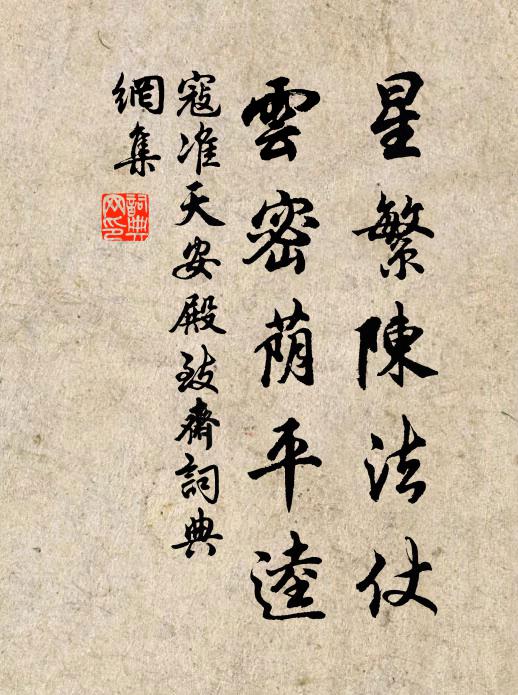 星繁陳法仗
雲密蔭平逵
寇准天安殿致齋詞典
網集
詞典網印